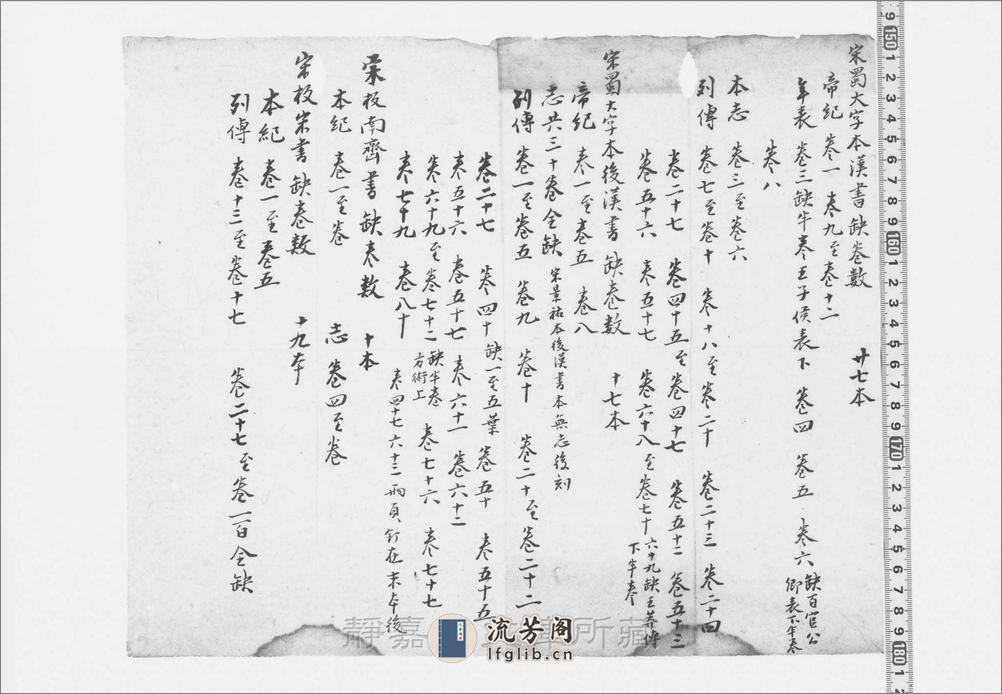 宋蜀大字本漢書缺卷數 廿七本
帝紀 卷一 卷九至卷十二
年表 卷三缺半卷王子侯表下 卷四 卷五 卷六缺百官公卿表下半卷
卷八
本志 卷三至卷六
列傳 卷七至卷十 卷十八至卷二十 卷二十三 卷二十四
卷二十七 卷四十五至卷四十七 卷五十二 卷五十三
卷五十六 卷五十七 卷六十八至卷七十 六十九缺王莽傳下半卷
宋蜀大字本後漢書缺卷數 十七本
帝紀 卷一至卷五 卷八
志共三十卷全缺 宋景祐本後漢書本無志後刻
列傳 卷一至卷五 卷九 卷十 卷二十至卷二十二
卷二十七 卷四十缺一至五葉 卷五十 卷五十五
卷五十六 卷五十七 卷六十一 卷六十二
卷六十九至卷七十二 缺半卷方術上 卷七十六 卷七十七
卷七十九 卷八十 卷四十七六十三兩頁釘在末本後
宋板南齊書缺卷數 十本
本紀 卷一至卷 志 卷四至卷
宋板宋書缺卷數 十九本
本紀 卷一至卷五
列傳 卷十三至卷十七 卷二十七至卷一百全缺
9 150 1 2 3 4 5 6 7 8 9 160 1 2 3 4 5 6 7 8 9 170 1 2 3 4 5 6 7 8 9 180 1
静嘉 所蔵
流芳阁
lfglib.cn